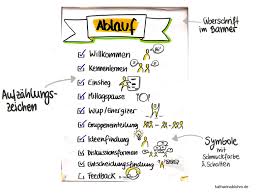 Ablauf
Überschrift
im Banner
Aufzählungs-
zeichen
Willkommen
Kennenlernen
Einstieg
Mittagspause
TOP
Wup/Energizer
Gruppeneinteilung
Ideenfindung
Diskussionsformen
Entscheidungsfindung
Feedback
Symbole
mit
Schmuckfarbe
& Schatten